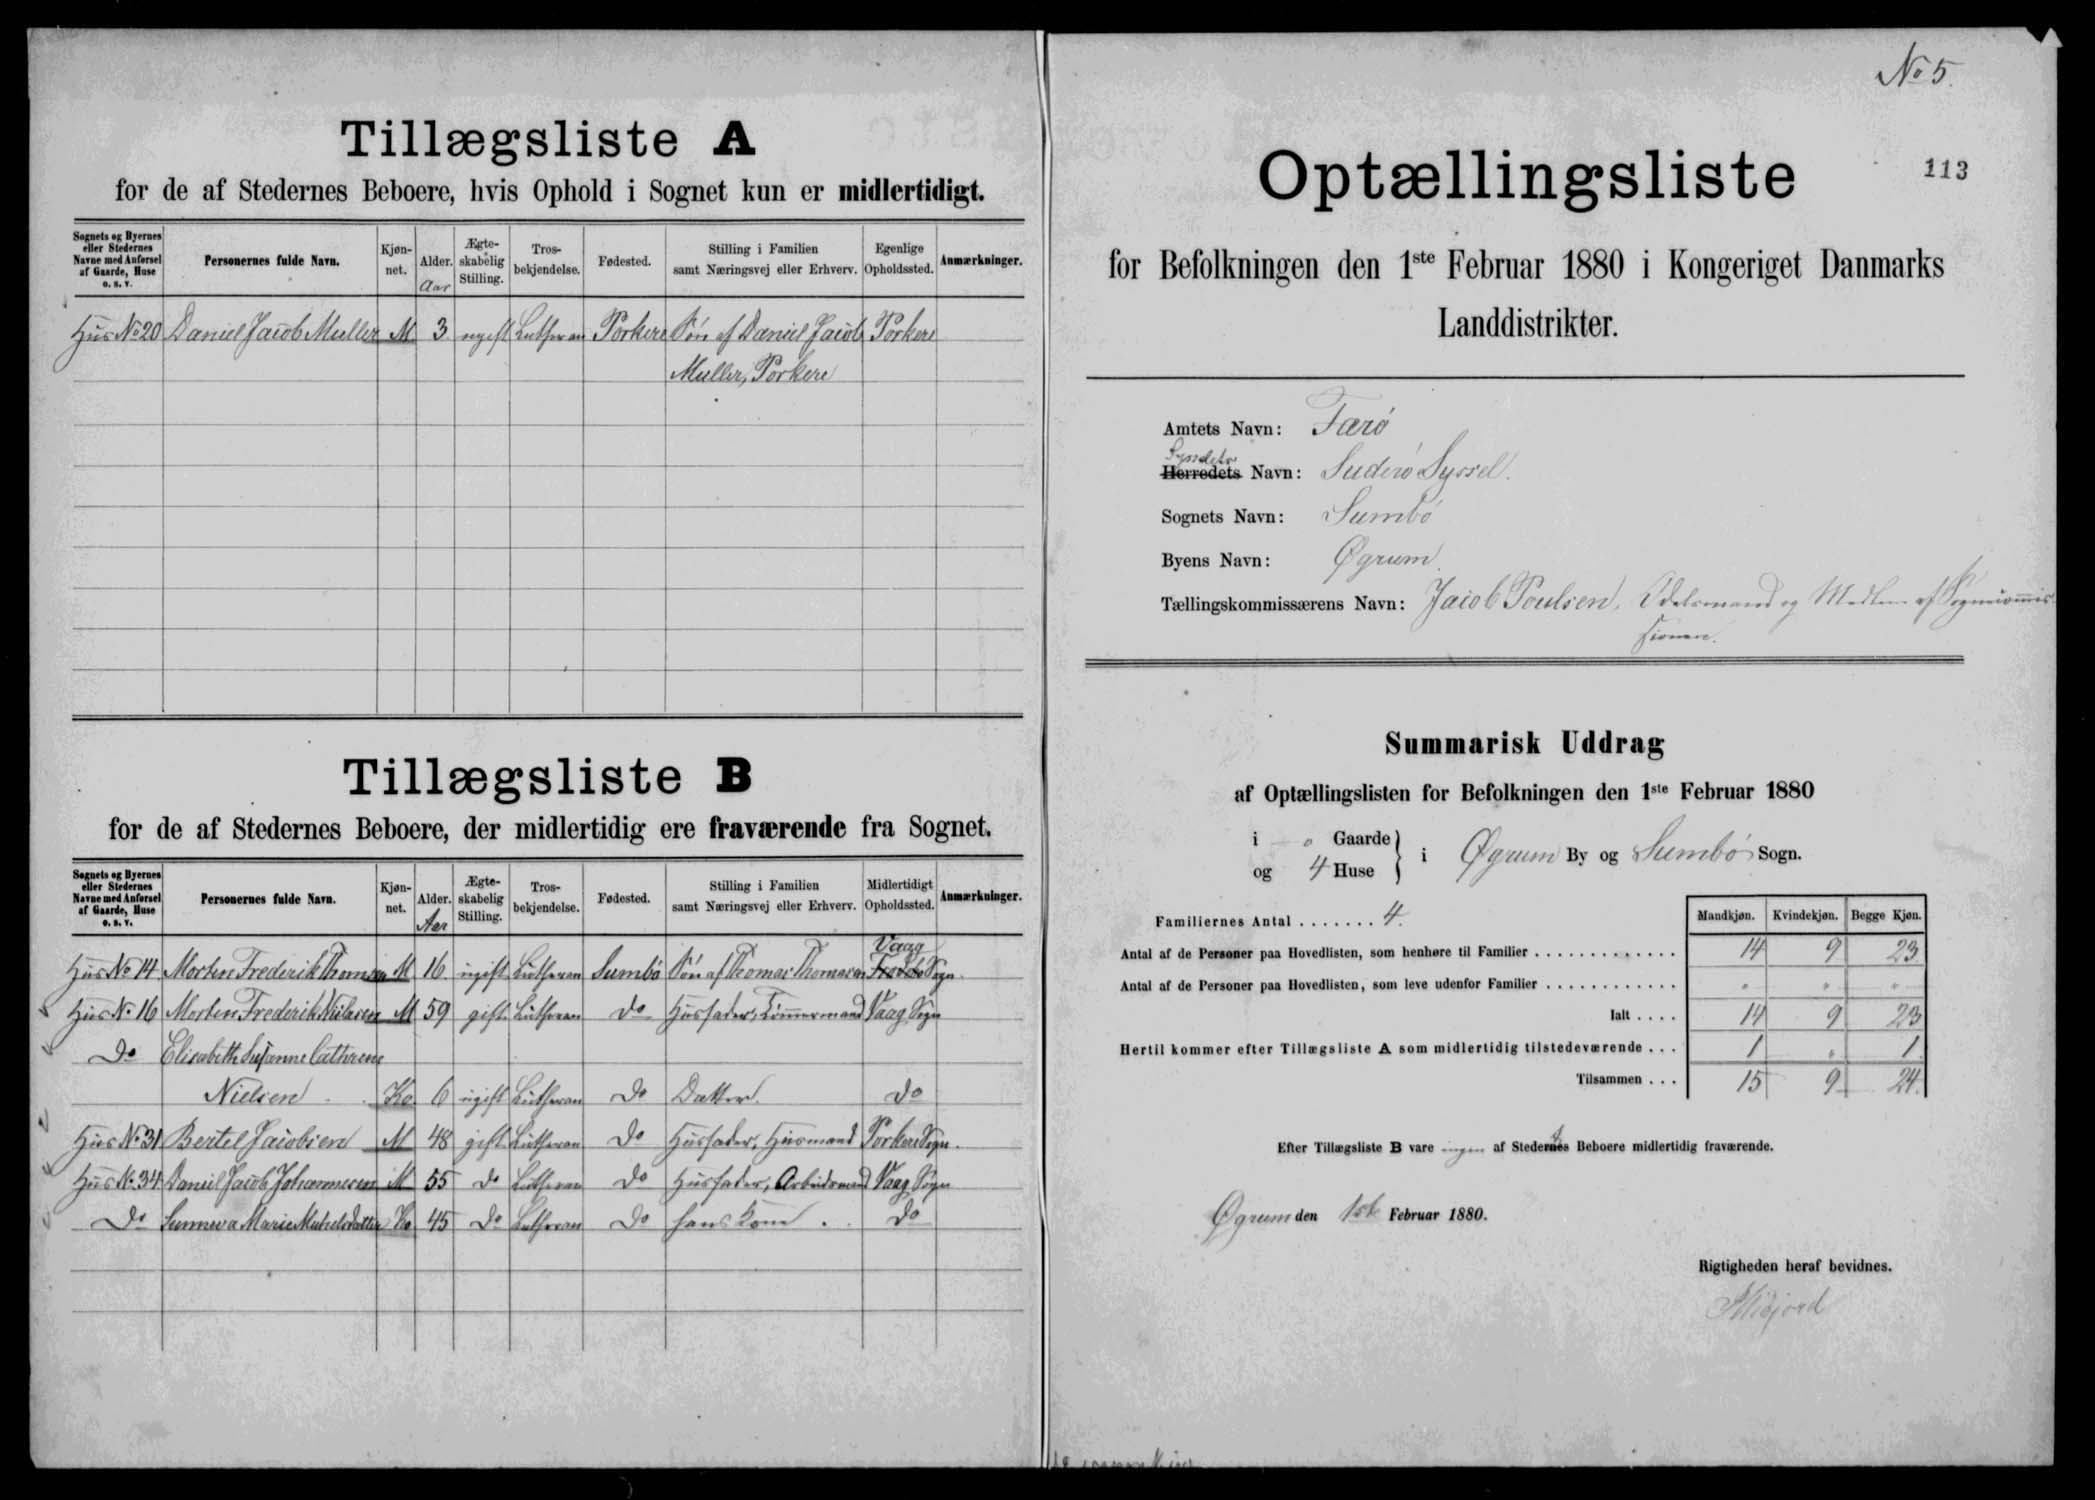 Tillægsliste A
for de af Stedernes Beboere, hvis Ophold i Sognet kun er midlertidigt.
Sognets og Byernes eller Stedernes Navne med Anførsel af Gaarde, Huse o. s. v. | Personernes fulde Navn. | Kjønnet. | Alder. Aar | Ægteskabelig Stilling. | Trosbekjendelse. | Fødested. | Stilling i Familien samt Næringsvej eller Erhverv. | Egenlige Opholdssted. | Anmærkninger.
Hus No 20 Daniel Jacob Muller M 3 ugift Lutheran Porkere Søn af Daniel Jacob Porkere
Muller, Porkere
Tillægsliste B
for de af Stedernes Beboere, der midlertidig ere fraværende fra Sognet.
Sognets og Byernes eller Stedernes Navne med Anførsel af Gaarde, Huse o. s. v. | Personernes fulde Navn. | Kjønnet. | Alder. Aar | Ægteskabelig Stilling. | Trosbekjendelse. | Fødested. | Stilling i Familien samt Næringsvej eller Erhverv. | Midlertidigt Opholdssted. | Anmærkninger.
Vaag
Hus No 14 Morten Frederik Thomsen M 16 ugift Lutheran Sumbø Søn af Thomas Thomasen Sogn.
Hus No 16 Morten Frederik Nielsen M 59 gift Lutheran do Husfader, Tömmermand Vaag Sogn
Do Elisabeth Susanne Cathrene
Nielsen Ko 6 ugift Lutheran do Datter. do
Hus No 31 Bertel Jacobsen M 48 gift Lutheran do Husfader, Husmand Porkere Sogn.
Hus No 34 Daniel Jacob Johannesen M 55 do Lutheran do Husfader, Arbeidsmand Vaag Sogn
Do Sunneva Marie Michelsdatter Ko 45 do Lutheran do hans Kone. do
No 5.
113
Optællingsliste
for Befolkningen den 1ste Februar 1880 i Kongeriget Danmarks
Landdistrikter.
Amtets Navn: Færø
Sysselets
Herredets Navn: Suderø Syssel.
Sognets Navn: Sumbø
Byens Navn: Øgrum.
Tællingskommissærens Navn: Jacob Poulsen, Odelsmand og Medlem af Sognecommis
sionen.
Summarisk Uddrag
af Optællingslisten for Befolkningen den 1ste Februar 1880
i " Gaarde
og 4 Huse } i Øgrum By og Sumbø Sogn.
Mandkjøn. | Kvindekjøn. | Begge Kjøn.
Familiernes Antal . . . . . . . 4.
Antal af de Personer paa Hovedlisten, som henhøre til Familier . . . . . . . . . . . . . 14 9 23
Antal af de Personer paa Hovedlisten, som leve udenfor Familier . . . . . . . . . . . . " " "
Ialt . . . . 14 9 23
Hertil kommer efter Tillægsliste A som midlertidig tilstedeværende . . . 1 " 1
Tilsammen . . . 15 9 24.
Efter Tillægsliste B vare ingen af Stedernes Beboere midlertidig fraværende.
Øgrum den 1ste Februar 1880.
Rigtigheden heraf bevidnes.